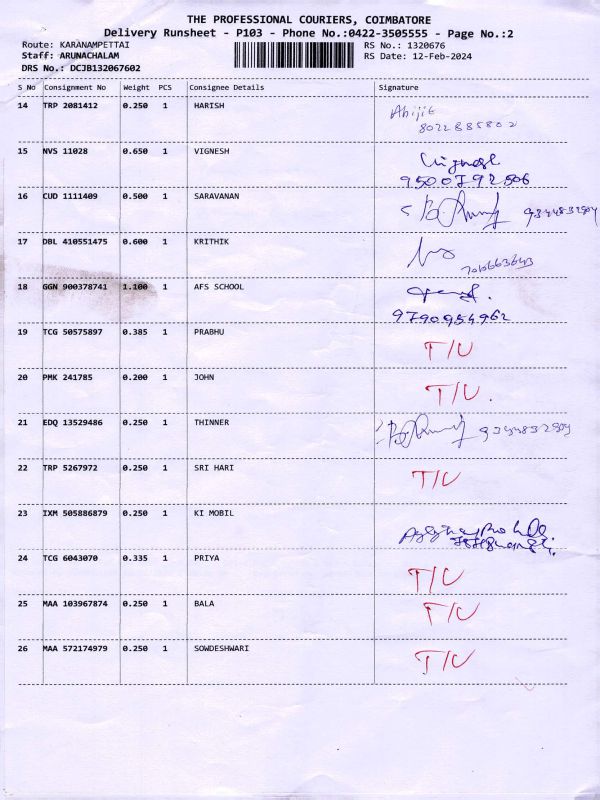 THE PROFESSIONAL COURIERS, COIMBATORE
Delivery Runsheet - P103 - Phone No.:0422-3505555 - Page No.:2
Route: KARANAMPETTAI RS No.: 1320676
Staff: ARUNACHALAM RS Date: 12-Feb-2024
DRS No.: DCJB132067602
S No Consignment No Weight PCS Consignee Details Signature
14 TRP 2081412 0.250 1 HARISH Abijit
8022885802
15 NVS 11028 0.650 1 VIGNESH Vignesh
9500792506
16 CUD 1111409 0.500 1 SARAVANAN 9344832904
17 DBL 410551475 0.600 1 KRITHIK
18 GGN 900378741 1.100 1 AFS SCHOOL
9790954962
19 TCG 50575897 0.385 1 PRABHU T/U
20 PMK 241785 0.200 1 JOHN T/U.
21 EDQ 13529486 0.250 1 THINNER 9344832904
22 TRP 5267972 0.250 1 SRI HARI T/U
23 IXM 505886879 0.250 1 KI MOBIL
24 TCG 6043070 0.335 1 PRIYA T/U
25 MAA 103967874 0.250 1 BALA T/U
26 MAA 572174979 0.250 1 SOWDESHWARI T/U